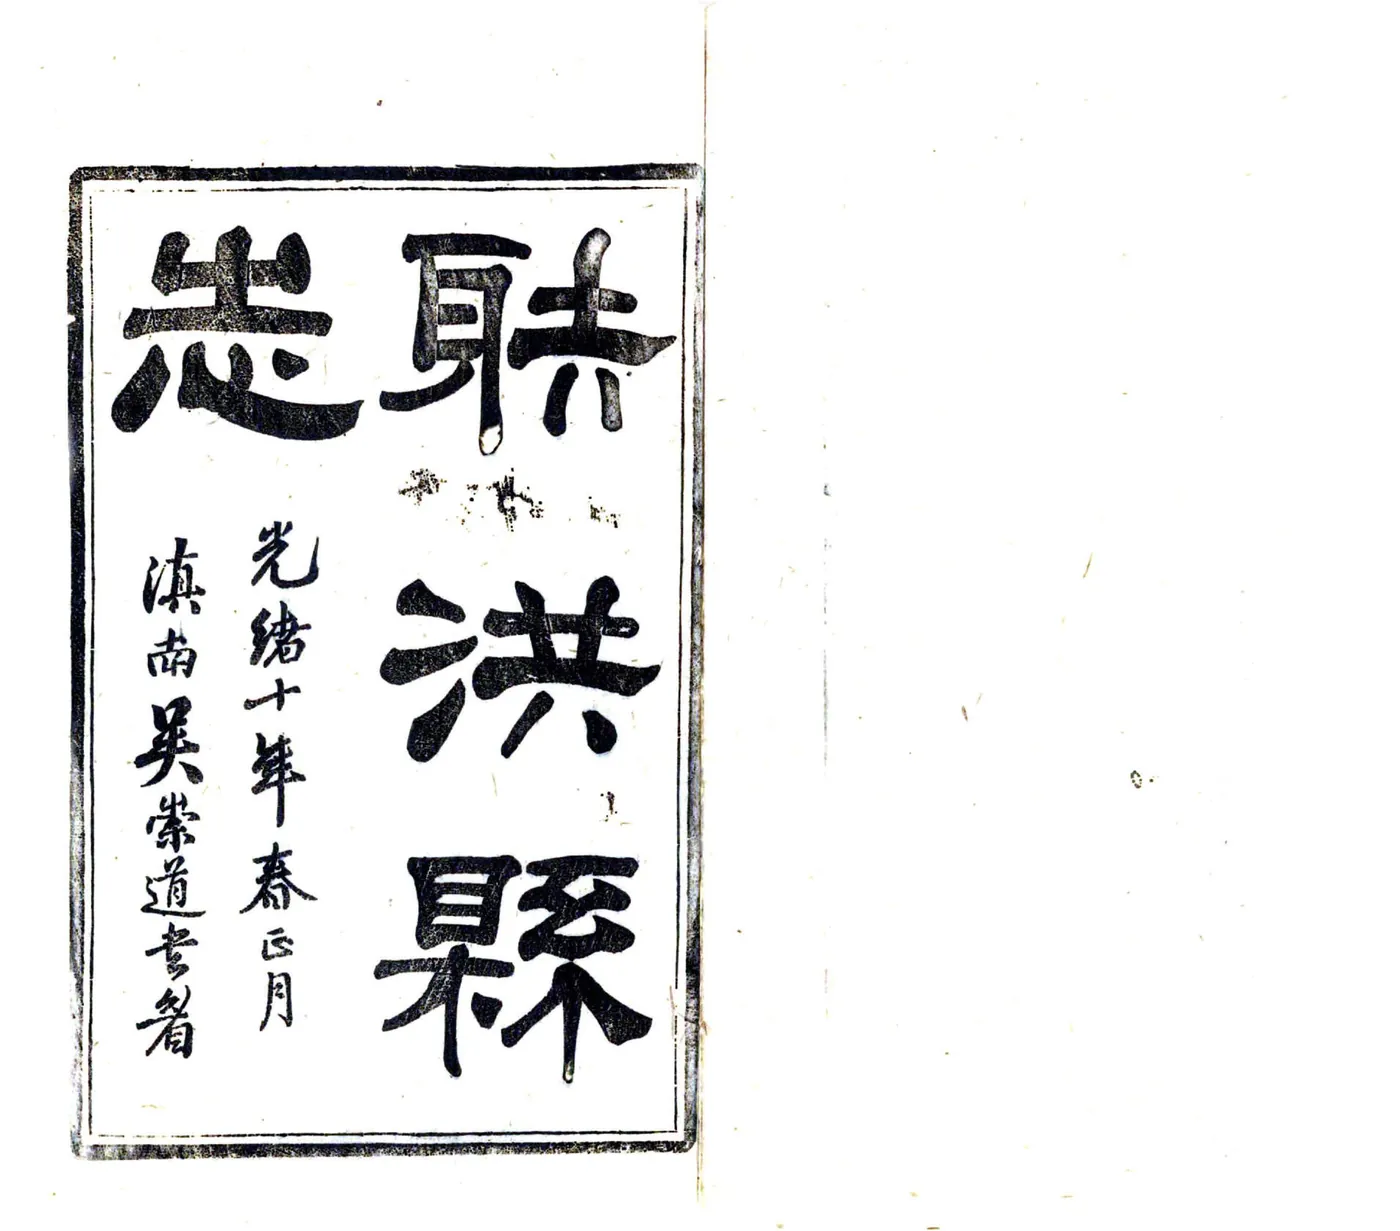 䠶洪縣
志
光緒十年春正月
滇南吳崇道書